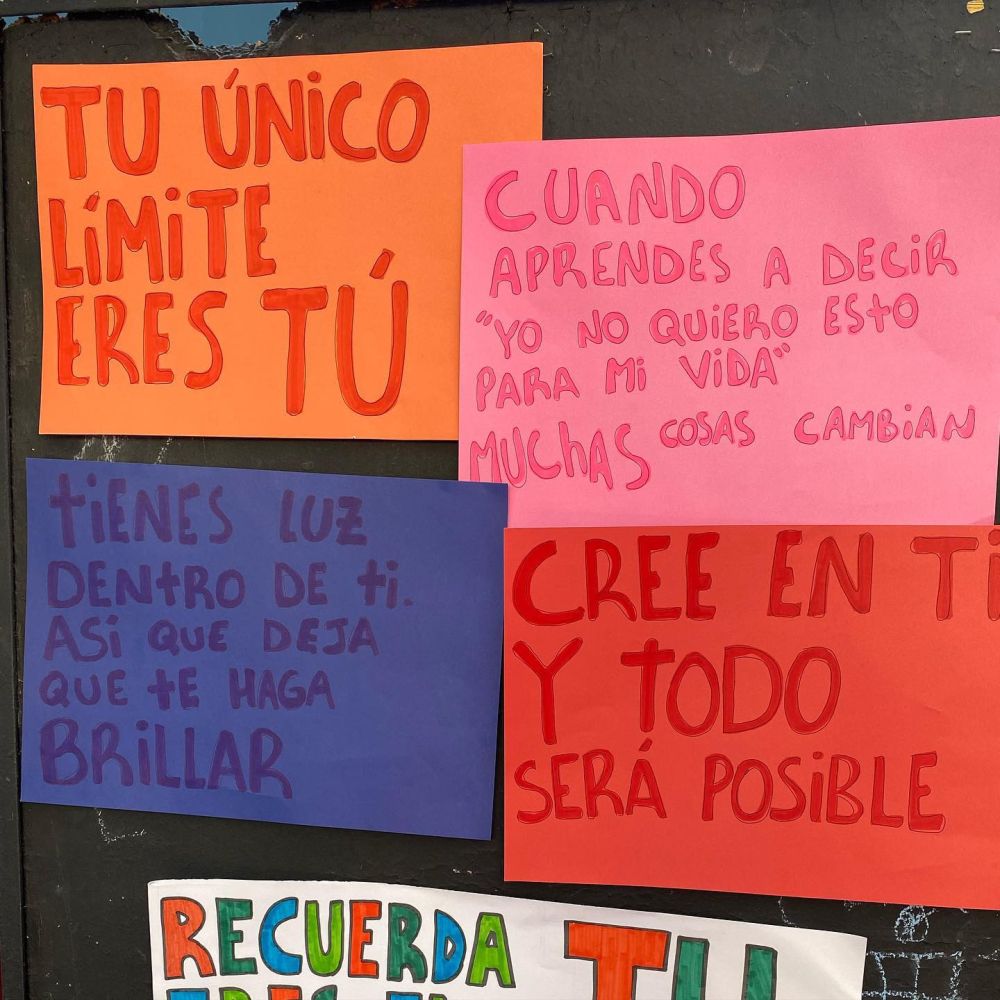 TU ÚNICO
LÍMITE
ERES TÚ
CUANDO
APRENDES A DECIR
"YO NO QUIERO ESTO
PARA MI VIDA"
MUCHAS COSAS CAMBIAN
TIENES LUZ
DENTRO DE TI.
ASI QUE DEJA
QUE TE HAGA
BRILLAR
CREE EN TI
Y TODO
SERÁ POSIBLE
RECUERDA TU
ERES